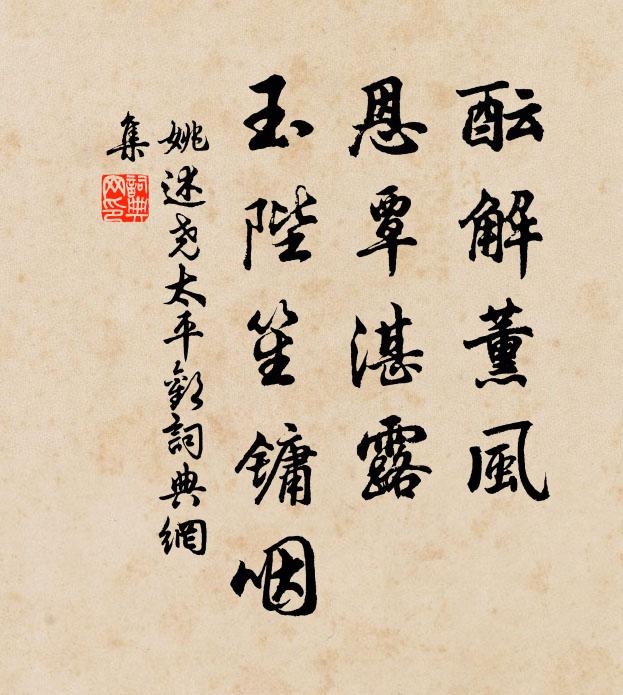 酝解薰風
恩覃湛露
玉陛笙鏞咽
姚述堯太平歡詞典網
集
詞典
网印